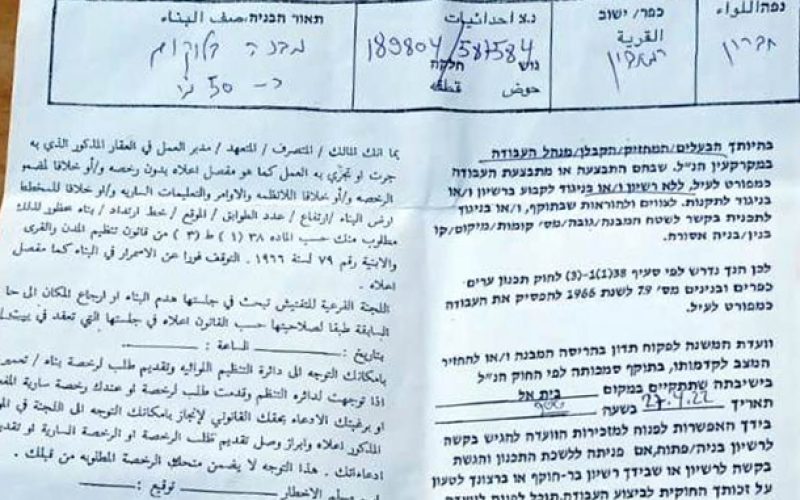 נפה/اللواء
חברון
כפר/ ישוב
القرية
נ.צ احداثيات
189804/587584
גוש חלקה
حوض قطعه
תאור הבניה/صف البناء
מבנה בלוקים
כ- 50 מ'
בהיותך הבעלים/המחזיק/הקבלן/מנהל העבודה
במקרקעין הנ"ל. שבהם התבצעה או מתבצעת העבודה
כמפורט לעיל, ללא רשיון ו/או בניגוד לקבוע ברשיון ו/או
בניגוד לתקנות. לצווים ולהוראות שבתוקף, ו/או בניגוד
לתכנית בקשר לשטח המבנה/גובה/מס' קומות/מיקום/קו
בנין/בניה אסורה.
לכן הנך נדרש לפי סעיף 38(1)-(3) לחוק תכנון ערים
כפרים ובנינים מס' 79 לשנת 1966 להפסיק את העבודה
כמפורט לעיל.
וועדת המשנה לפקוח תדון בהריסה המבנה ו/או להחזיר
המצב לקדמותו, בתוקף סמכותה לפי החוק הנ"ל
בישיבתה שתתקיים במקום בית אל
תאריך 27.4.22 בשעה
בידך האפשרות לפנות למזכירות הוועדה להגיש בקשה
לרשיון בניה/פתוח,אם פניתה ללשכת התכנון והגשת
בקשה לרשיון או שבידך רשיון בר-תוקף או ברצונך לטעון
על זכותך החוקית לביצוע העבודה
بما انك المالك / المتصرف / المتعهد / مدير العمل في العقار المذكور الذي به
جرت او تجري به العمل كما هو مفصل اعلاه بدون رخصه و/أو خلافا لمضمو
الرخصه و/أو خلافا للانظمه والاوامر والتعليمات الساريه و/او خلافا للمخطط
ارض البناء /ارتفاع / عدد الطوابق / الموقع / خط ارتداد / بناء محظور لذلك
مطلوب منك حسب الماده ٣٨ (١) ط (٣) من قانون تنظيم المدن والقرى
والابنية رقم ٧٩ لسنة ١٩٦٦ . التوقف فورا عن الاسمرار في البناء كما مفصل
اعلاه .
اللجنة الفرعية للتفتيش تبحث في جلستها هدم البناء او ارجاع المكان الى حا
السابقة طبقا لصلاحيتها حسب القانون اعلاه في جلستها التي تعقد في بيت ايل
بتاريخ : الساعة :
بامكانك التوجه الى دائرة التنظيم اللوائيه وتقديم طلب لرخصة بناء / تعمير
اذا توجهت لدائره التنظم وقدمت طلب لرخصة او عندك رخصة سارية المفع
او برغبتك الادعاء بحقك القانوني لإنجاز بامكانك التوجه الى اللجنة في المو
المذكور اعلاه وابراز وصل تقديم طلب الرخصة او الرخصة السارية او تقديم
ادعاءاتك . هذا التوجه لا يضمن منحك الرخصة المطلوبه من قبلك .
الاخطار توقيع :